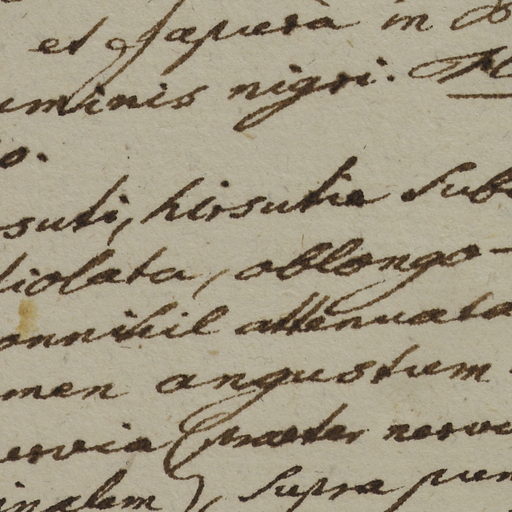 et Japura in
uminis nigri.
o.
suti, hirsutie sub
tiolata, oblongo-
onnihil attenuata
men angustum
ervia (praeter nervu
inalem), supra pun